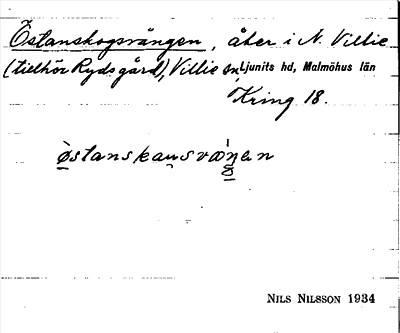 Östanskogsvängen, åker i N. Villie
(tillhör Rydsgård), Villie sn, Ljunits hd, Malmöhus län
Kring 18.
östanskaụsvæŋen
NILS NILSSON 1934